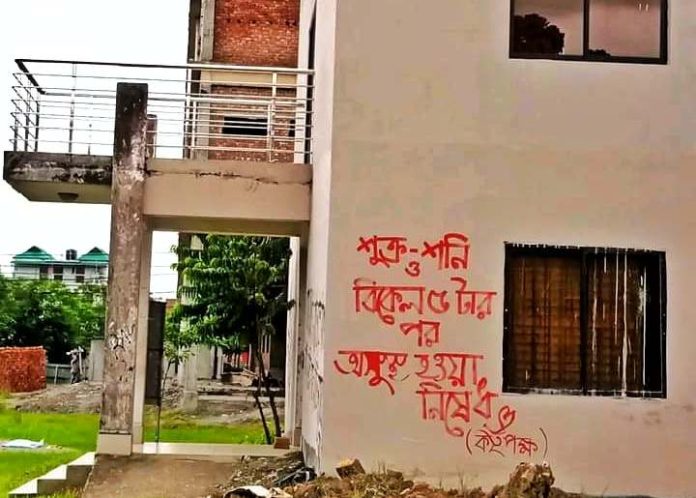 শুক্র-শনি
ও
বিকেল ৫ টার
পর
অসুস্থ হওয়া
নিষেধ
(কর্তৃপক্ষ)